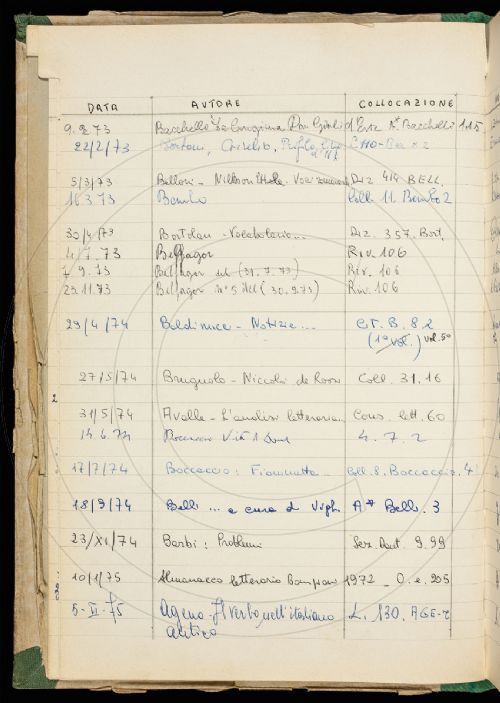 DATA AUTORE COLLOCAZIONE
9.2.73 Bacchelli La Congiura Don Giulio d'Este A* Bacchelli 115
22/2/73
5/3/73 Belloni - Nilsson Ehle. Voci Diz 414 BELL.
16 3 73 Bembo Coll. 11. Bembo 2
30/4/73 Bortolan - Vocabolario... Diz. 357. Bort.
4/7.73 Belfagor Riv. 106
7 9.73 Belfagor del (31.7.73) Riv. 106
29.11.73 Belfagor n° 5 del (30.9.73) Riv. 106
29/4/74 Baldinucci - Notizie... B. 82
(1° vol.) vol. 5°
27/5/74 Brugnolo - Niccolò de Rossi Coll. 31.16
2
31/5/74 Avalle - L'analisi letteraria Cons. lett. 60
14.6.74 4. 7. 2
17/7/74 Boccaccio: Fiammetta - Coll. 8. Boccaccio. 4
18/9/74 Belli ... a cura di Vigh. A* Belli. 3
23/XI/74 Barbi: Problemi Sez. Dant. 9.99
10/1/75 Almanacco letterario Bompiani 1972 - O. e. 205
5-II-75 Ageno - Il verbo nell'italiano L. 130. AGE-2
antico